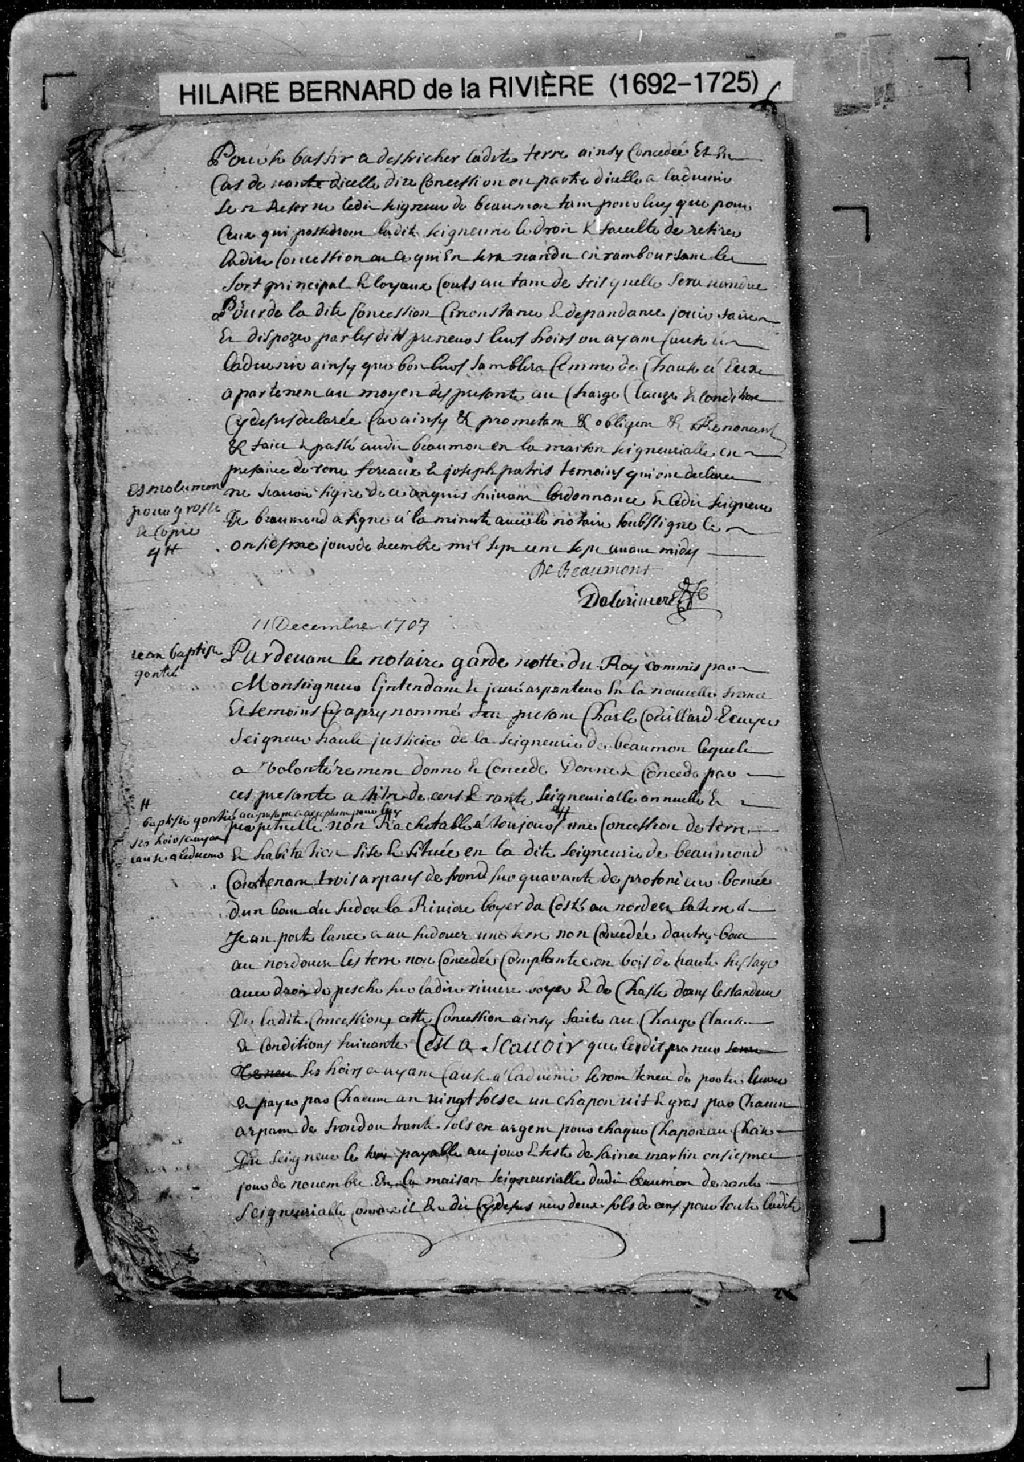 HILAIRE BERNARD de la RIVIÈRE (1692–1725)
a destricher ladite terre ainsy Concedée Et En
Cas de vante dicelle dite Concession ou partie dicelle a ladvenir
Se Reserve ledit seigneur de beaumon tam pour luy que pour
Ceux qui possederon ladite seigneurie le droit & faculté de retirer
ladite Concession ou ce qui En sera vandu en ramboursam le
Sort principal & loyaux Couts au tam de suis quelle sera vandue
Pour de la dite Concession Circonstance & dependance jouir faire
Et dispozer par lesdits preneurs leurs hoirs ou ayam Cause a
ladvenir ainsy que bon leurs samblera Comme de Chause a Eux
apartenem au moyen des presente au Charge Clauze & Condition
Cy desus declarée Car ainsy & prometam & obligem & Renoncent
& faict & passé audit beaumon en la maison seigneurialle en
presance de rene & joseph patris temoins qui ont declare
ne scavoir signer de ce enquis suivam lordonnance & ledit seigneur
De beaumond a signe a la minute avec le notaire soubsigne le
onsiesme jour de decembre mil sept cent sept avam midy
Esmolument
pour grosse
& copie
4 ++
De Beaumont
Delariviere
11 Decembre 1707
Jean baptiste
gontié
Pardevam le notaire garde notte du Roy commis par
Monseigneur Lintendam & juré arpenteur En la nouvelle france
Et temoins Cy apres nommé fut presam Charle Couillard Ecuyer
Seigneur haute justicier de la seigneurie de beaumon lequele
a volontérement donne & Concede Donne & Concede par
ces presante a titre de cens & rante seigneurialle annuelle &
perpetuelle non Rachetable a toujours une Concession de terre
++
baptiste gontié acceptam pour luy
ses hoirs ou ayam
cause a ladvenir
& habitation size & située en la dite seigneurie de beaumond
Contenam trois arpans de frond sur quarante de profondeur bornée
Dun bout du sudou la Riviere boyer da Costé au nordest la terre d
Jean poste lance a au sudouest une terre non Concedée dautre bou
au nordouest les terre non Concedée Complantée en bois de haute fustaye
avec droit de pesche sur ladite riviere boyer & de Chasse dans lestandue
De ladite Concession cette Concession ainsy faite au Charge Clause
& Conditions suivante Cest a Scavoir que ledit preneur
ses hoirs ou ayam Cause a ladvenir seront tenu de porter
& payer par Chacun an vingt sols & un chapon vif & gras par Chacun
arpam de frond ou trante sols en argem pour chaque Chapon au Choix
Du seigneur le payable au jour & feste de sainct martin onsiesme
jour de novembre En la maison seigneurialle dudit beaumon de rante
Seigneurialle deux sols de cens pour toute ladite